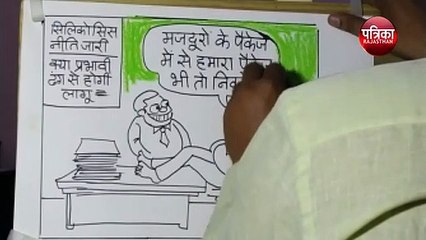 सिलिकोसिस
नीति जारी
क्या प्रभावी
ढंग से होगी
लागू
मजदूरों के पैकेज
में से हमारा
भी तो
पत्रिका
RAJASTHAN